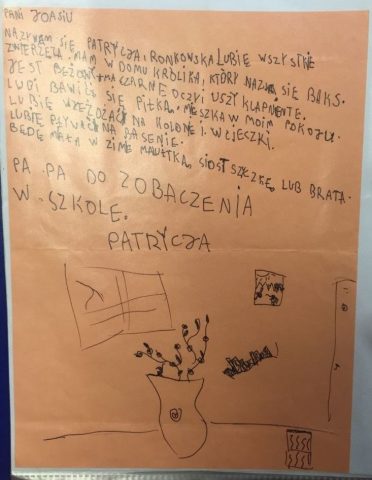 PANI JOASIU
NAZYWAM SIĘ PATRYCJA RONKOWSKA LUBIĘ WSZYSTKIE
ZWIERZĘTA MAM W DOMU KRÓLIKA, KTÓRY NAZWA SIĘ BAKS.
JEST BEŻOWY MA CZARNE OCZY I USZY KLAPNIENTE.
LUBI BAWIĆ SIĘ PIŁKĄ. MIESZKA W MOIM POKOJU.
LUBIĘ WJEŻDŻAĆ NA KOLONE I WCIECZKI.
LUBIĘ PŁYWAĆ NA BASENIE.
BĘDĘ MIAŁA W ZIMĘ MALUTKĄ SIOSTSZYCZKĘ LUB BRATA.
PA PA DO ZOBACZENIA
W SZKOLE.
PATRYCJA